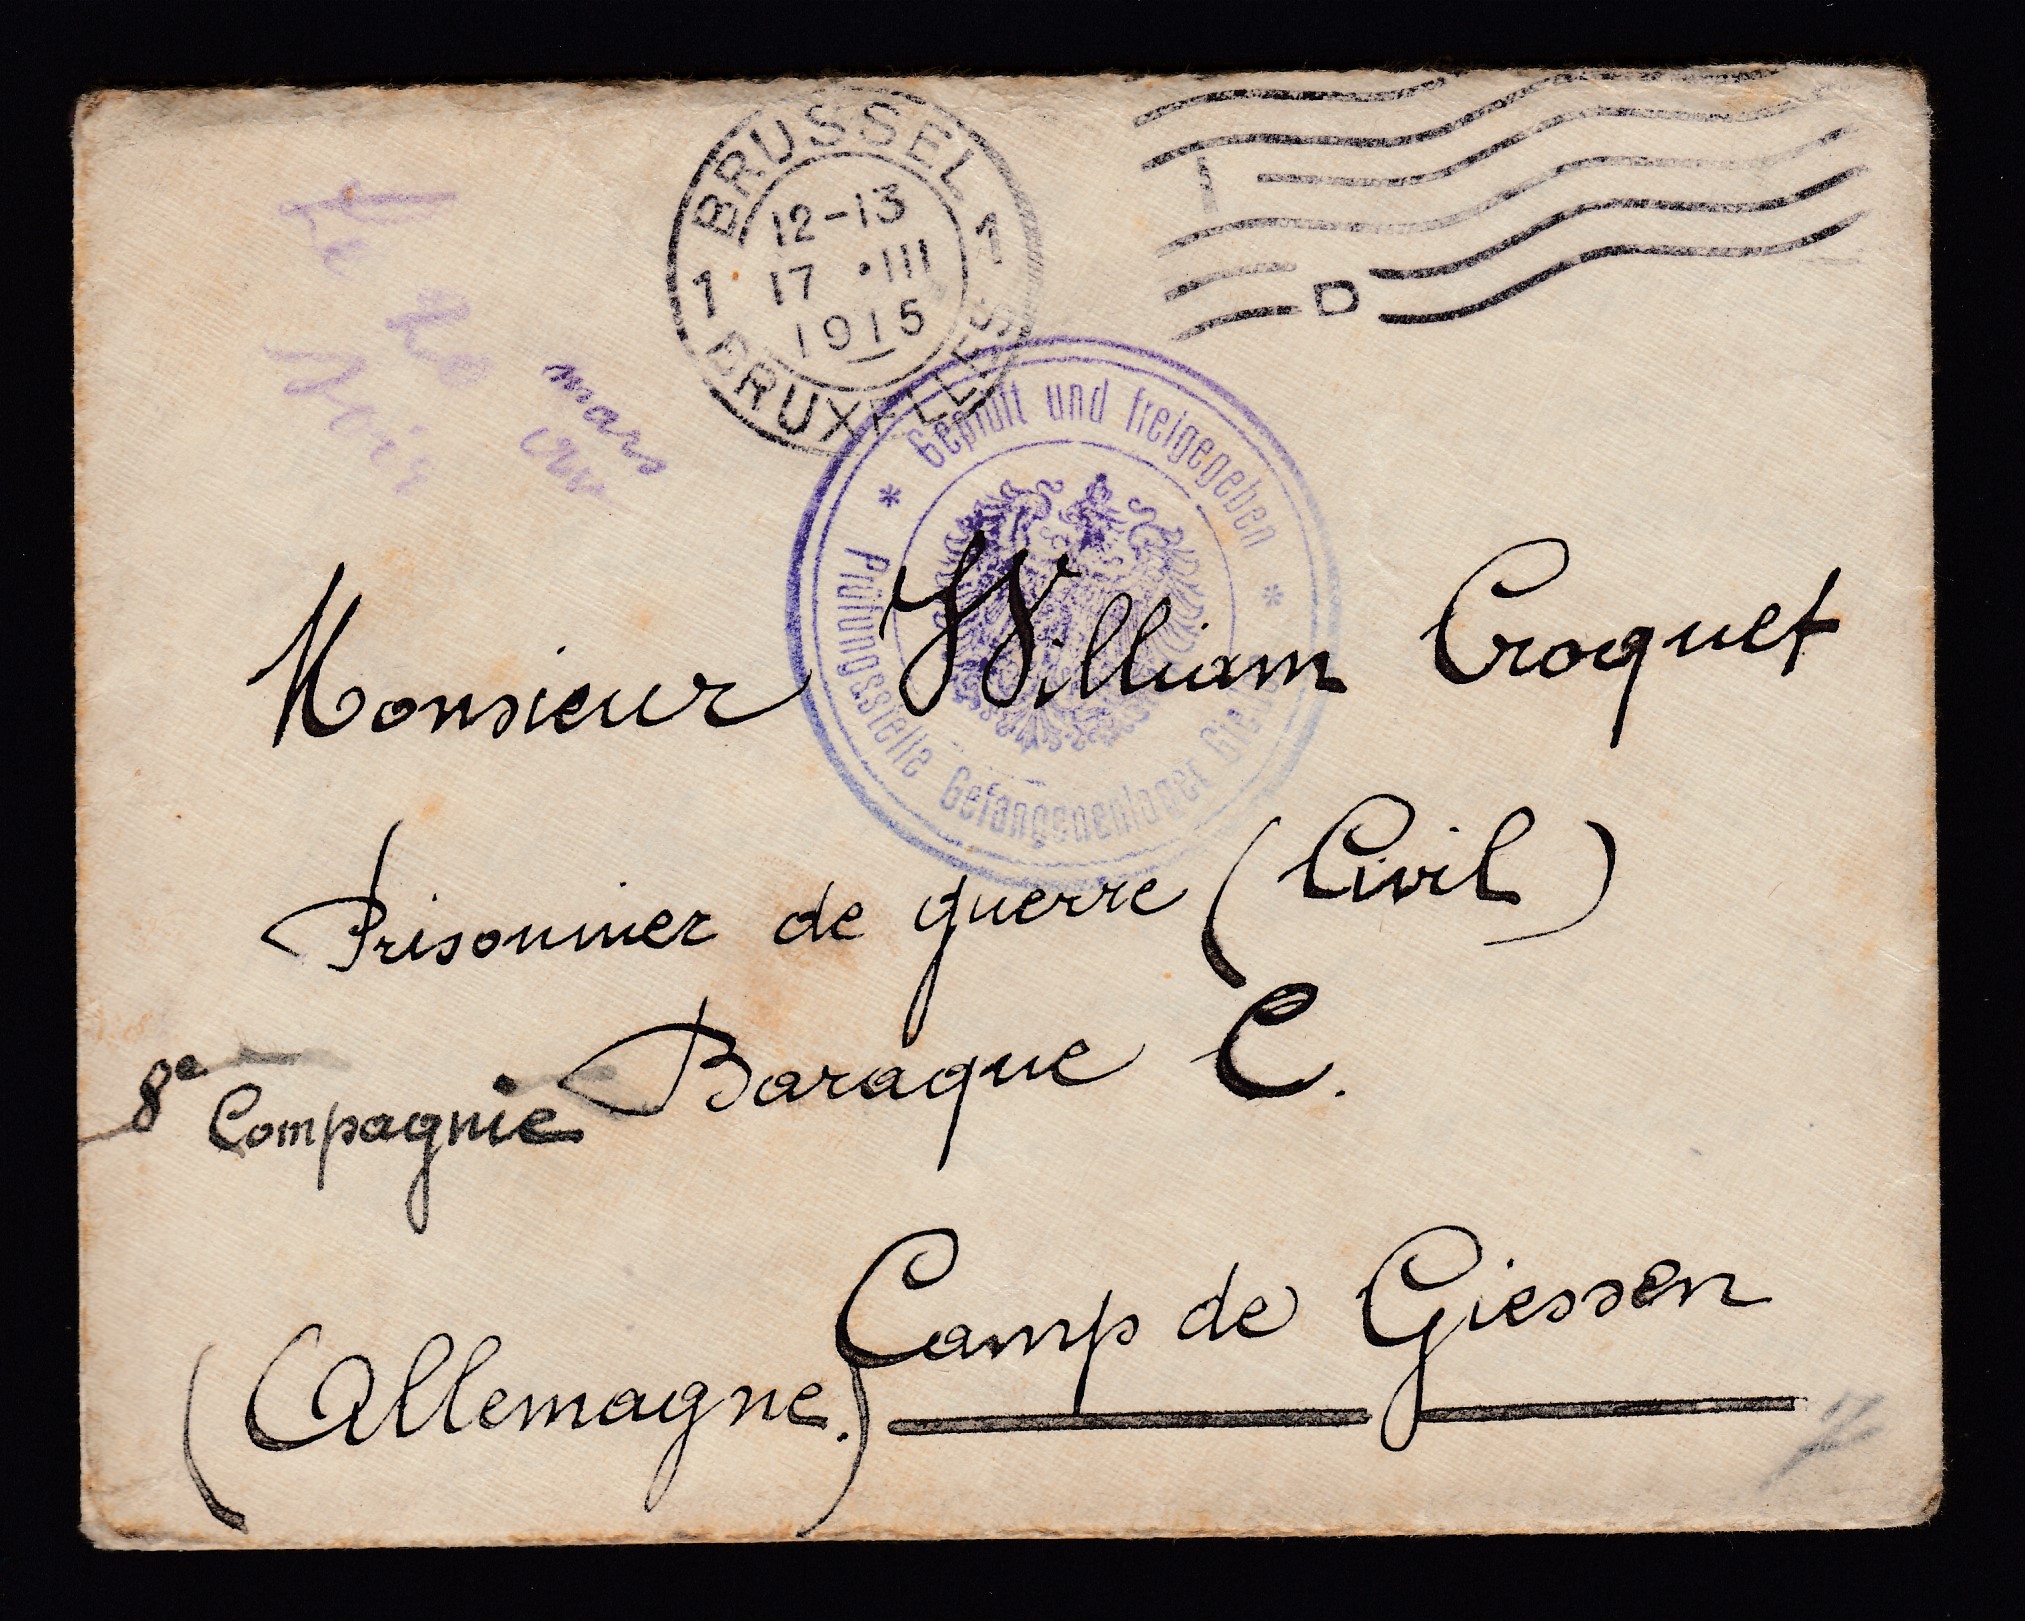 BRUSSEL
1 12-13 1
17 •III
1915
BRUXELLES
D
Le 20 mars
Geprüft und freigegeben
* *
Prüfungsstelle Gefangenenlager
Monsieur William Croquet
Prisonnier de guerre (Civil)
8e Compagnie Baraque C.
Camp de Giessen
(Allemagne.)